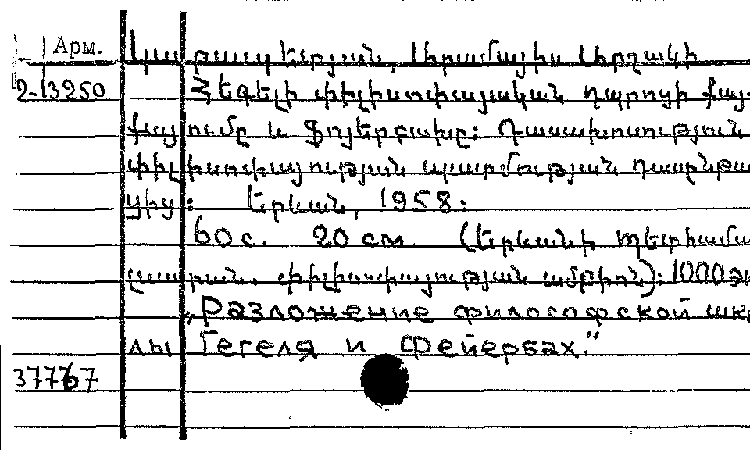 Арм.
Կարապետյան, Արամայիս Միրզակի
2-13250 Հեգելի փիլիսոփայական դպրոցի քայ-
քայումը և Ֆոյերբախը: Դասախոսություն
փիլիսոփայության պատմության դասընթա-
ցից: Երևան, 1958:
60 с. 20 см (Երևանի պետիամա
լսարան. փիլիսոփայության ամբիոն): 1000 эк
„Разложение философской шко
лы Гегеля и Фейербах."
37767